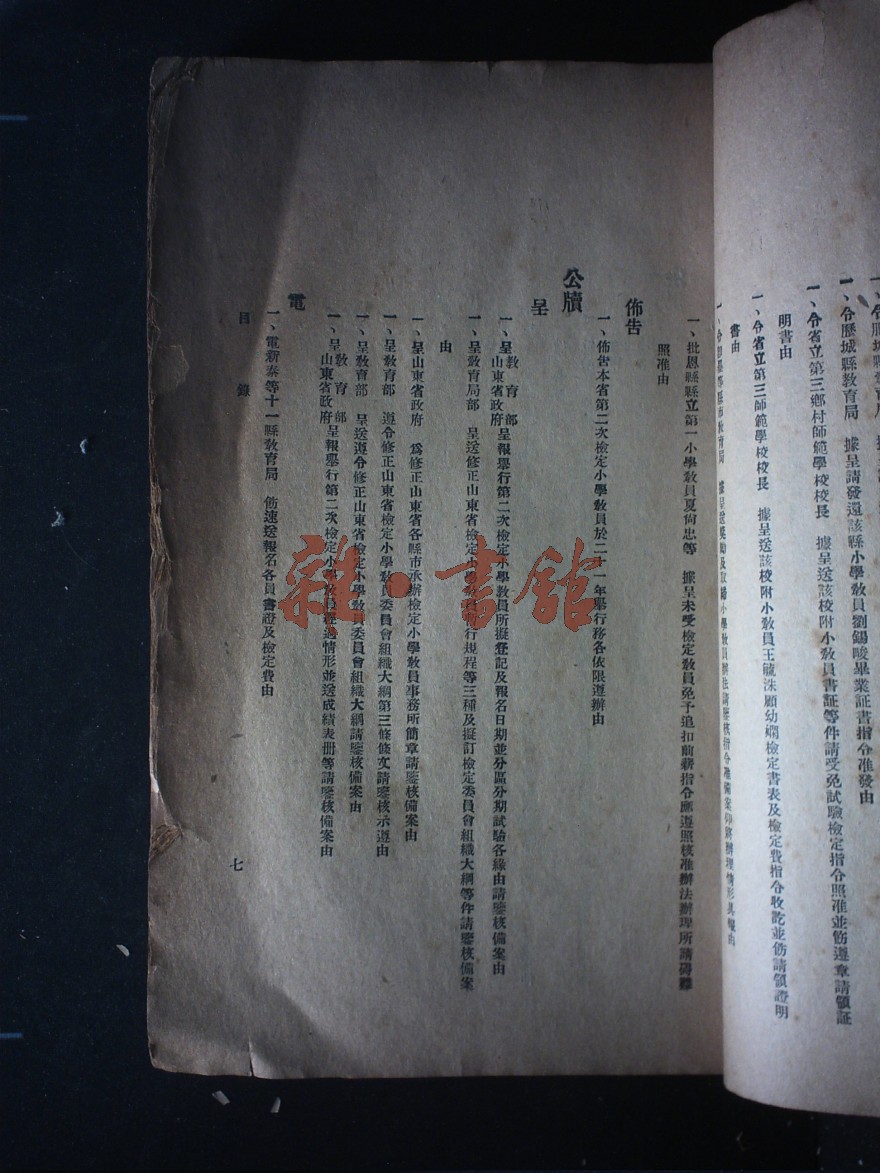 一、令歷城縣教育局　據呈請發還該縣小學教員劉錫畯畢業証書指令准發由
一、令省立第三鄉村師範學校校長　據呈送該校附小教員書証等件請受免試驗檢定指令照准並飭遵章請領証
明書由
一、令省立第三師範學校校長　據呈送該校附小教員王毓洙顧幼嫻檢定書表及檢定費指令收訖並飭請領證明
書由
縣市教育局　據呈送獎勵及取締小學教員辦法請鑒核指令准備案仰將辦理情形具報由
一、批恩縣縣立第一小學教員夏尙忠等　據呈未受檢定教員免予追扣前薪指令應遵照核准辦法辦理所請碍難
照准由
佈告
一、佈告本省第二次檢定小學教員於二十一年舉行務各依限遵辦由
公牘
呈
一、呈教育部山東省政府呈報舉行第二次檢定小學教員所擬登記及報名日期並分區分期試驗各緣由請鑒核備案由
一、呈教育局部　呈送修正山東省檢定小學教員行規程等三種及擬訂檢定委員會組織大綱等件請鑒核備案
由
一、呈山東省政府　爲修正山東省各縣市承辦檢定小學教員事務所簡章請鑒核備案由
一、呈教育部　遵令修正山東省檢定小學教員委員會組織大綱第三條條文請鑒核示遵由
一、呈教育部　呈送遵令修正山東省檢定小學教員委員會組織大綱請鑒核備案由
一、呈教育部山東省政府呈報舉行第二次檢定小學教員經過情形並送成績表册等請鑒核備案由
電
一、電新泰等十一縣教育局　飭速送報名各員書證及檢定費由
目錄
七
雜·書館